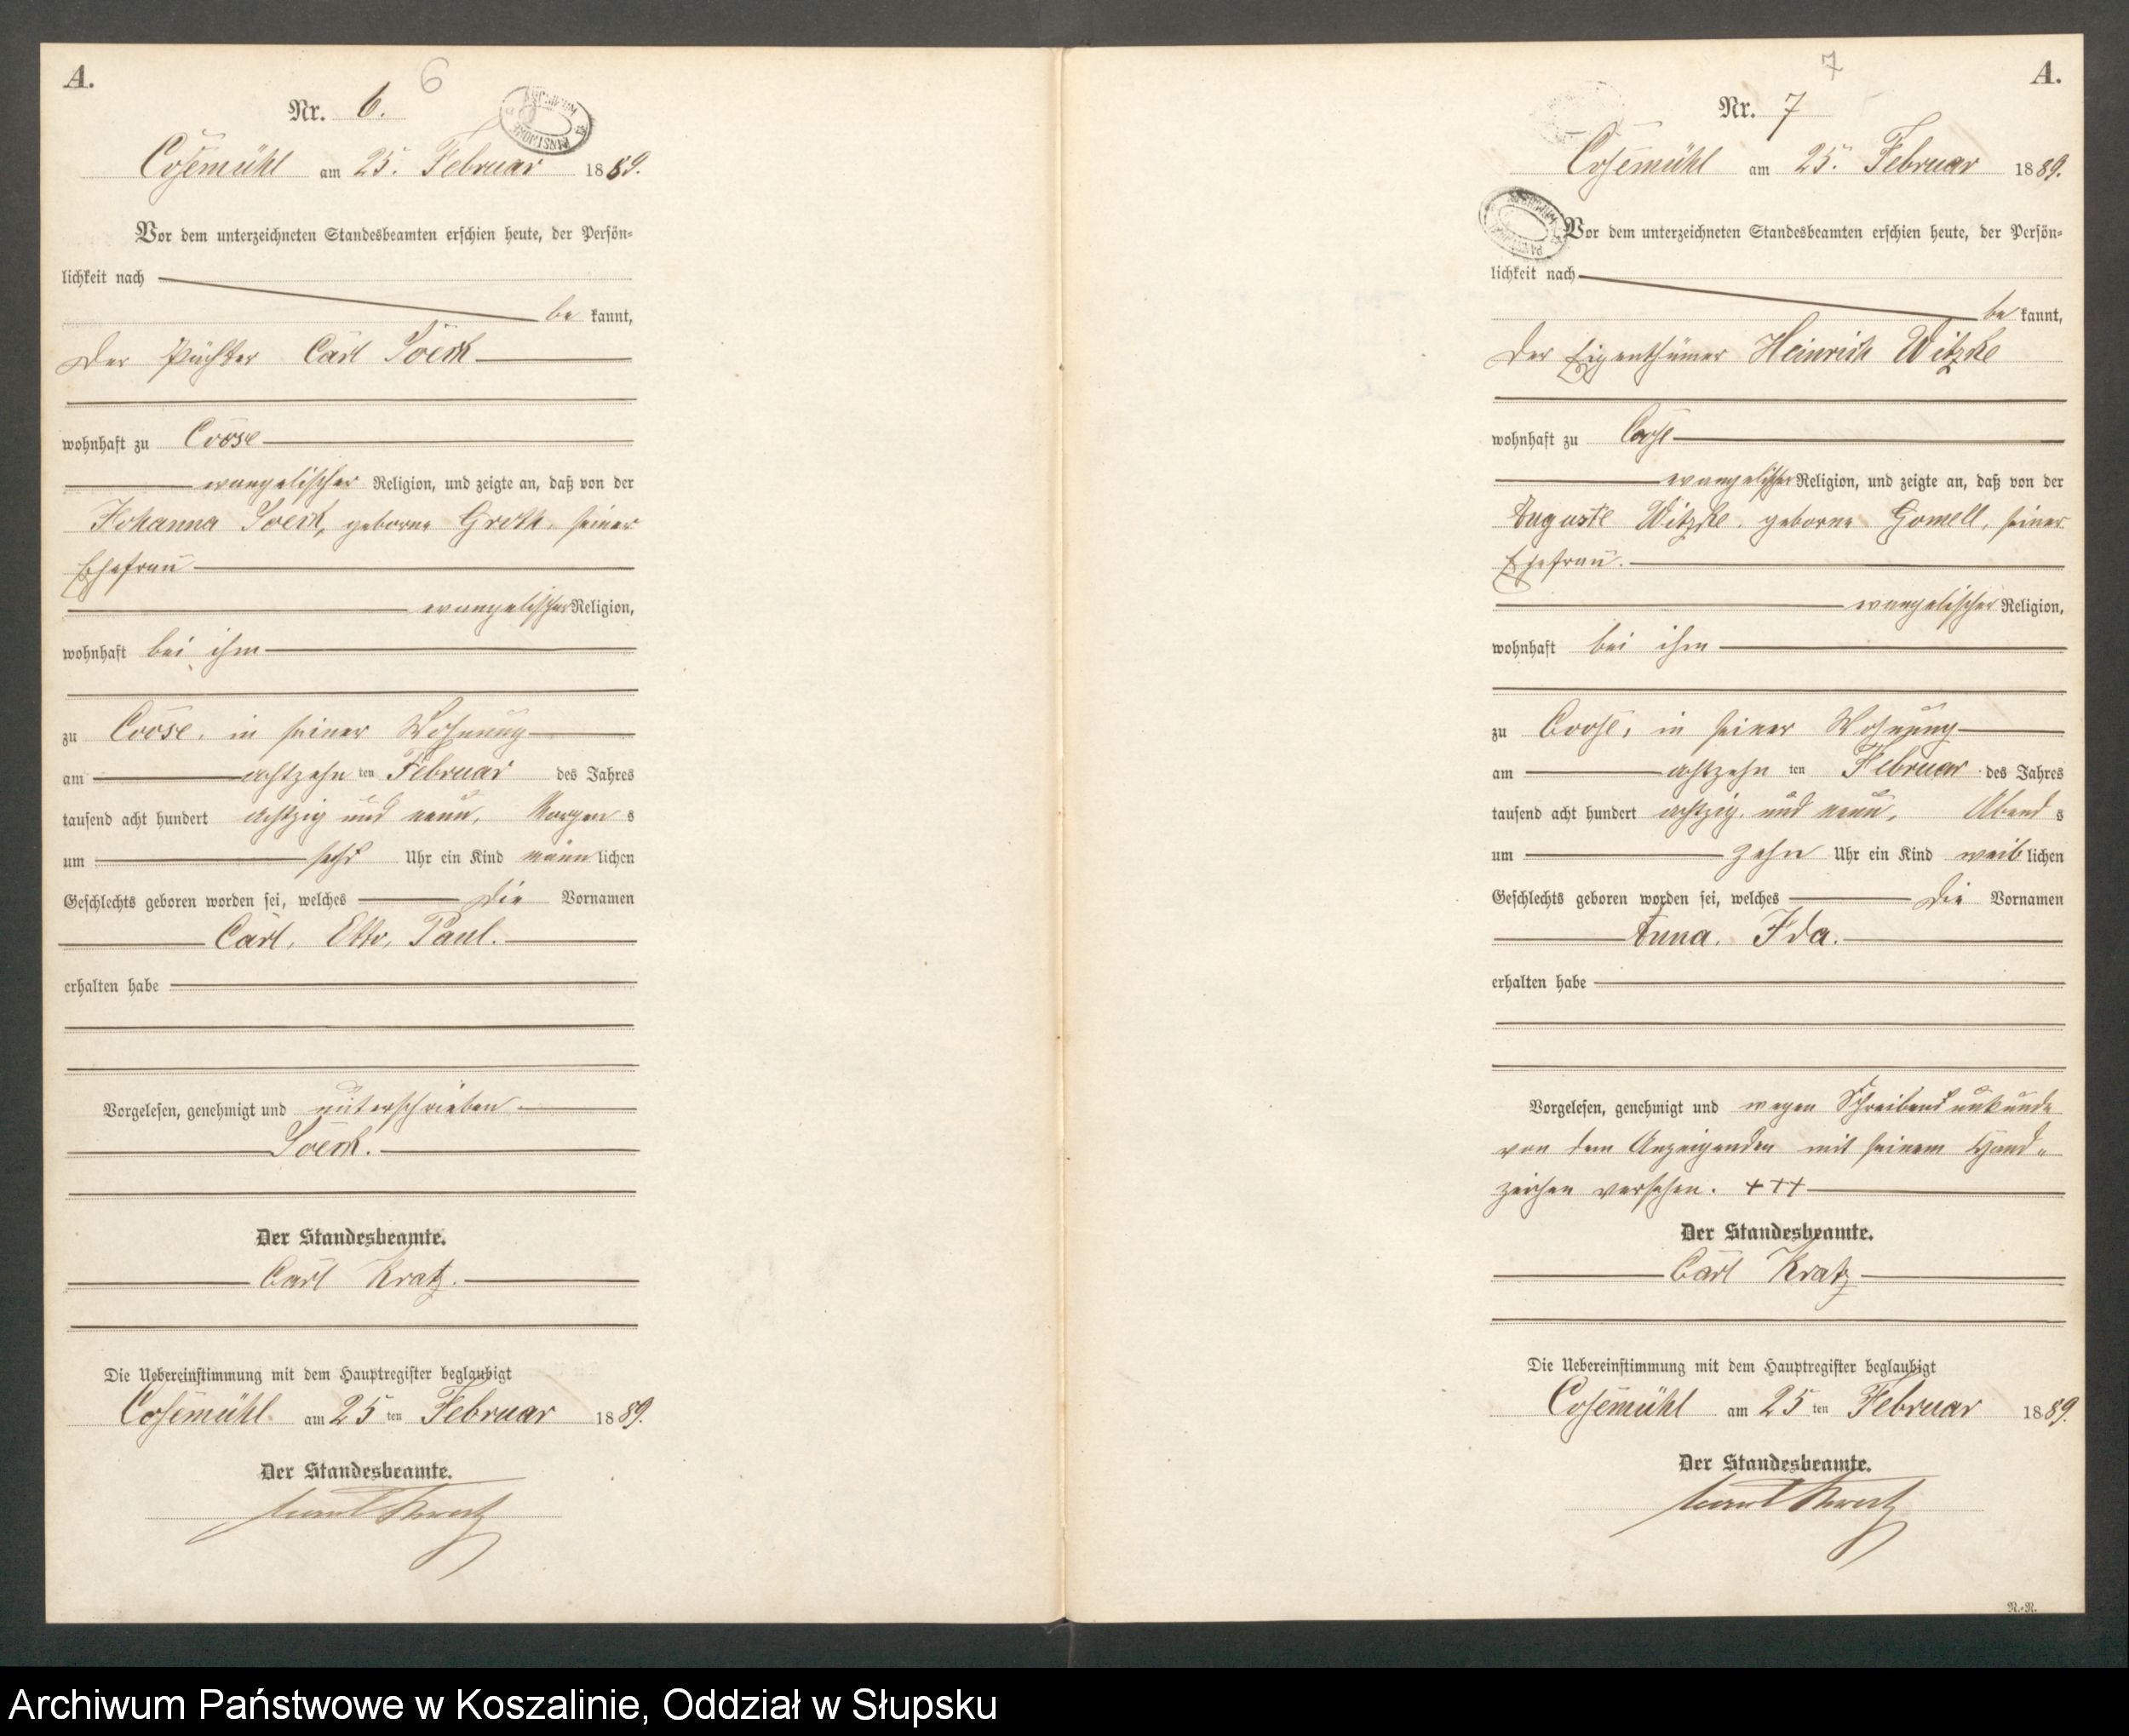 A.
6
Nr. 6.
Cosemühl am 25. Februar 1889.
Vor dem unterzeichneten Standesbeamten erschien heute, der Persön-
lichkeit nach
be kannt,
der Pächter Carl
wohnhaft zu Coose
evangelischer Religion, und zeigte an, daß von der
Johanna geborne Groth, seiner
Ehefrau
evangelischer Religion,
wohnhaft bei ihm
zu Coose, in seiner Wohnung
am achtzehn ten Februar des Jahres
tausend acht hundert achtzig und neun, Morgen s
um sechs Uhr ein Kind männ lichen
Geschlechts geboren worden sei, welches die Vornamen
Carl, Otto, Paul.
erhalten habe
Vorgelesen, genehmigt und unterschrieben.
Der Standesbeamte.
Carl Kratz.
Die Uebereinstimmung mit dem Hauptregister beglaubigt
Cosemühl am 25 ten Februar 1889.
Der Standesbeamte.
Carl Kratz
7
A.
Nr. 7
Cosemühl am 25. Februar 1889.
Vor dem unterzeichneten Standesbeamten erschien heute, der Persön-
lichkeit nach
be kannt,
der Eigenthümer Heinrich Witzke
wohnhaft zu Coose
evangelischer Religion, und zeigte an, daß von der
Auguste Witzke, geborne Gomell, seiner
Ehefrau.
evangelischer Religion,
wohnhaft bei ihm
zu Coose, in seiner Wohnung
am achtzehn ten Februar des Jahres
tausend acht hundert achtzig und neun, Abend s
um zehn Uhr ein Kind weib lichen
Geschlechts geboren worden sei, welches die Vornamen
Anna, Ida.
erhalten habe
Vorgelesen, genehmigt und wegen Schreibensunkunde
von dem Anzeigenden mit seinem Hand-
zeichen versehen. +++
Der Standesbeamte.
Carl Kratz
Die Uebereinstimmung mit dem Hauptregister beglaubigt
Cosemühl am 25 ten Februar 1889.
Der Standesbeamte.
Carl Kratz
R.-R.
Archiwum Państwowe w Koszalinie, Oddział w Słupsku